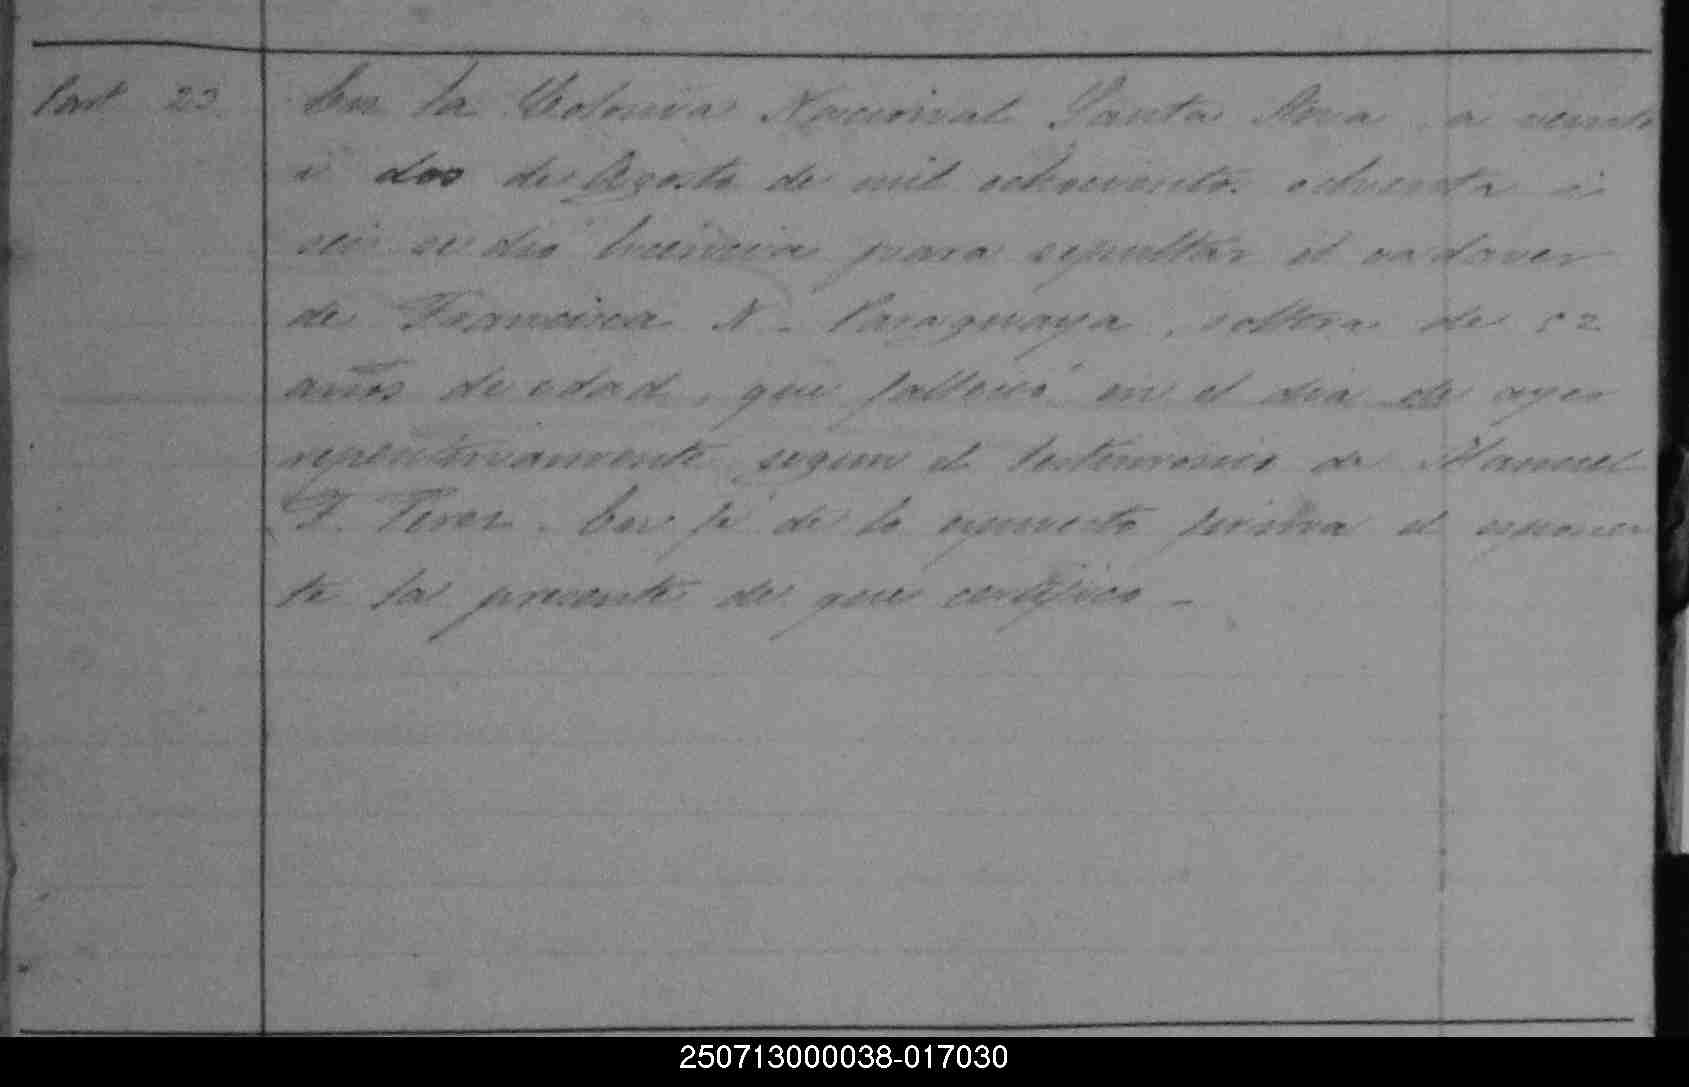 Part 23. En la Colonia Nacional Santa Ana, a veinte
i dos de Agosto de mil ochocientos ochenta i
seis se dió licencia para sepultar el cadaver
de Francisca N. Paraguaya, soltera de 52
años de edad, que falleció en el dia de ayer
repentinamente segun el testimonio de Manuel
F. Perez. En fé de lo espuesto firma el esponen
te la presente de que certifico -
250713000038-017030